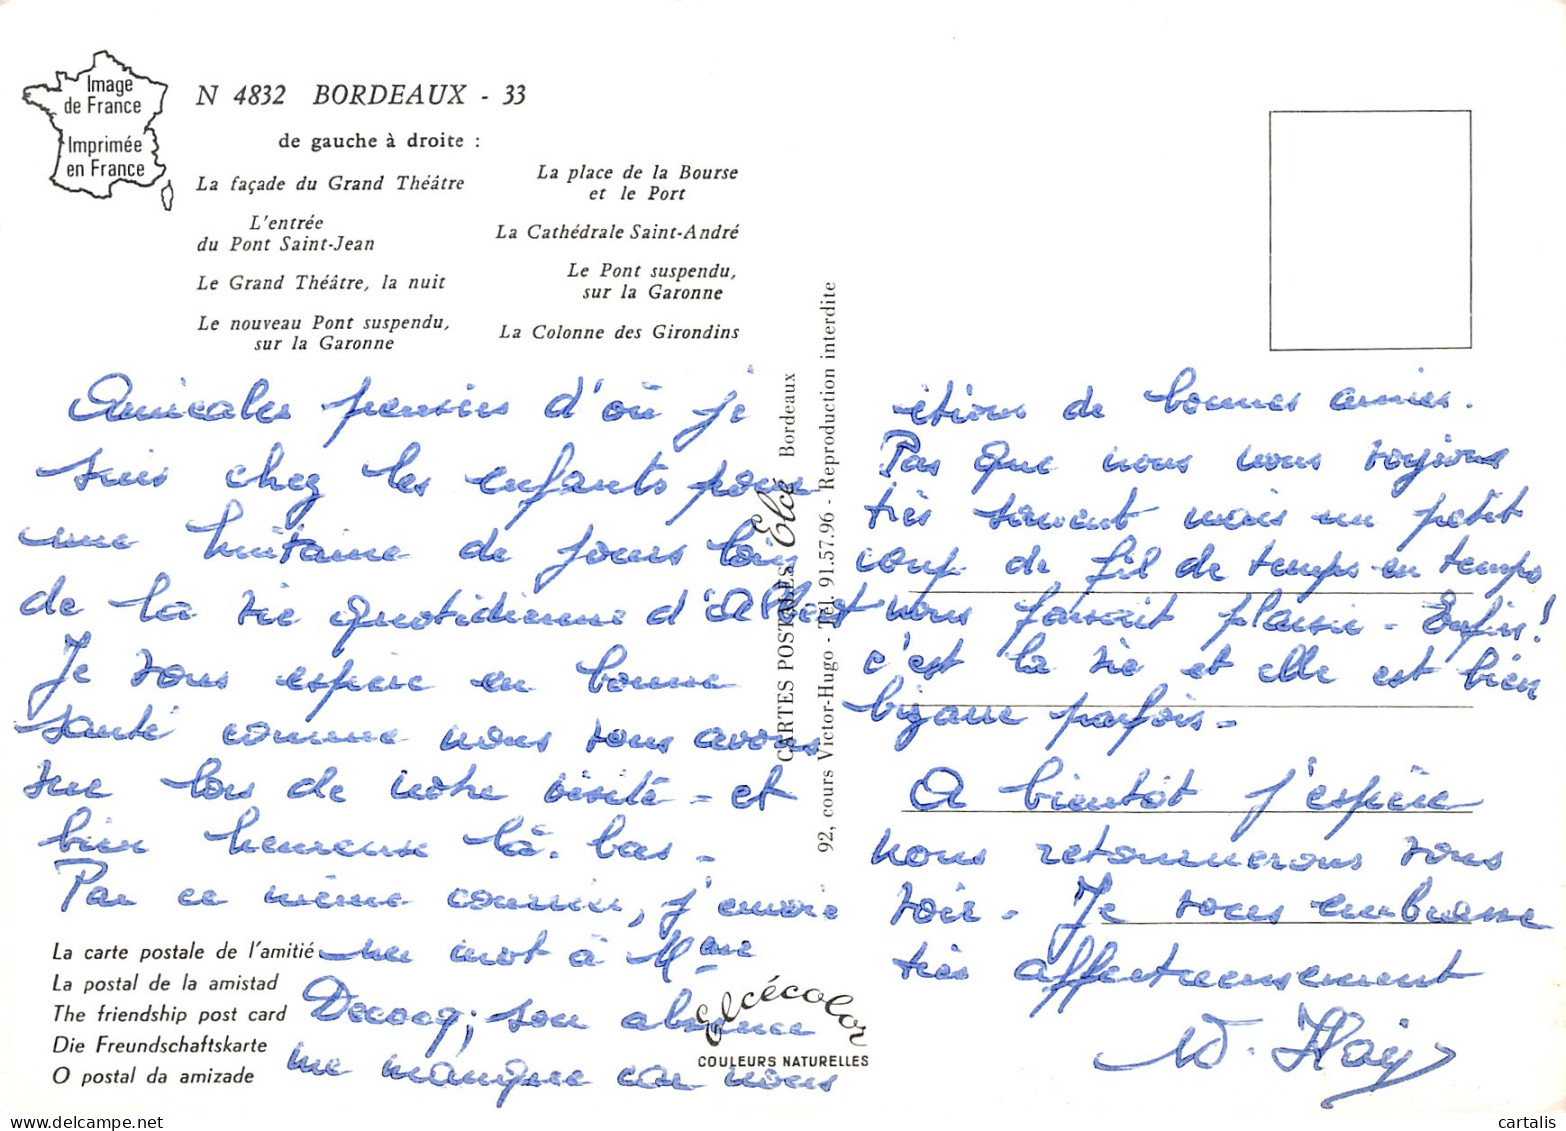 Image
de France
Imprimée
en France
N 4832 BORDEAUX - 33
de gauche à droite :
La façade du Grand Théâtre
L'entrée
du Pont Saint-Jean
Le Grand Théâtre, la nuit
Le nouveau Pont suspendu,
sur la Garonne
La place de la Bourse
et le Port
La Cathédrale Saint-André
Le Pont suspendu,
sur la Garonne
La Colonne des Girondins
Amicales pensées d'où je
suis chez les enfants pour
une huitaine de jours loin
de la vie quotidienne d'Albert
Je vous espère en bonne
santé comme nous vous avons
vue lors de notre visite - et
bien heureuse là-bas -
Par ce même courrier, j'envoie
un mot à Mme
Decocq; son absence
me manque car nous
La carte postale de l'amitié
La postal de la amistad
The friendship post card
Die Freundschaftskarte
O postal da amizade
CARTES POSTALES Elcé Bordeaux
92, cours Victor-Hugo - Tél. 91.57.96 - Reproduction interdite
Elcécolor
COULEURS NATURELLES
étions de bonnes amies.
Pas que nous nous voyions
très souvent mais un petit
coup de fil de temps en temps
nous faisait plaisir - Enfin!
c'est la vie et elle est bien
bizarre parfois -
A bientôt j'espère
nous retournerons vous
voir - Je vous embrasse
très affectueusement
cartalis